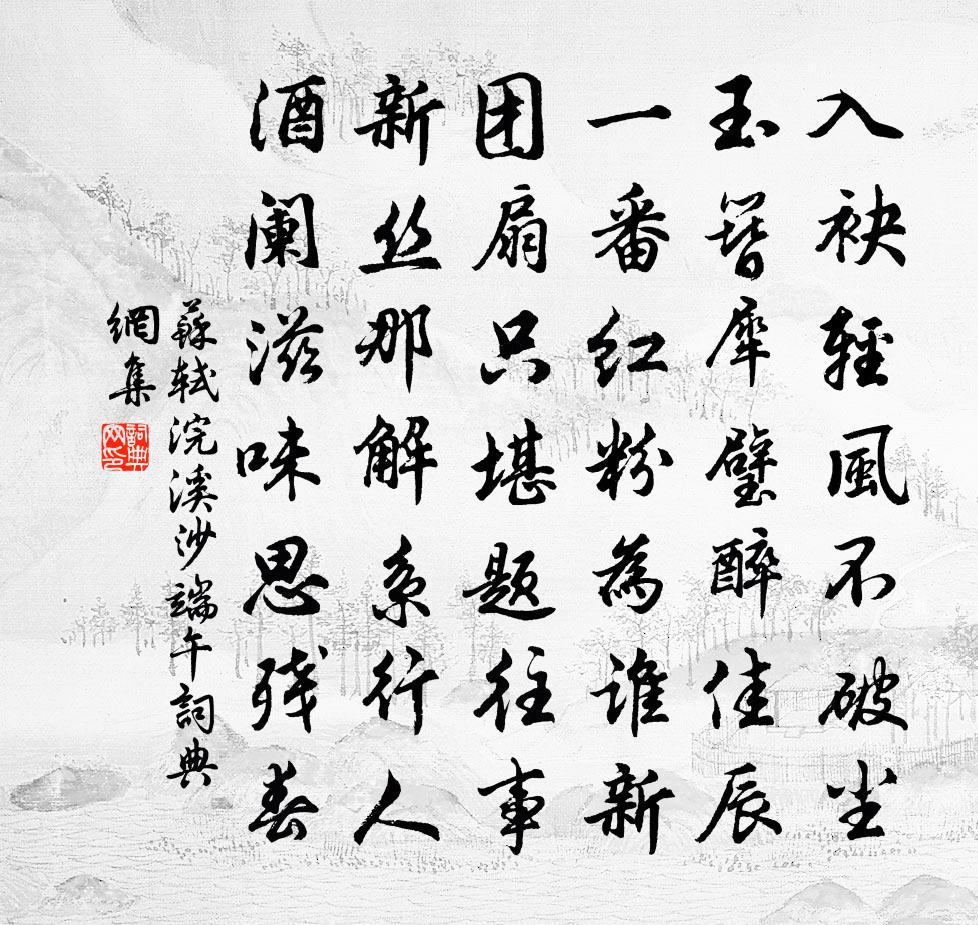 入袂輕風不破尘
玉簪犀璧醉佳辰
一番红粉為谁新
团扇只堪题往事
新丝那解系行人
酒阑滋味思残春
蘇軾浣溪沙端午詞典
網集
詞典
网印